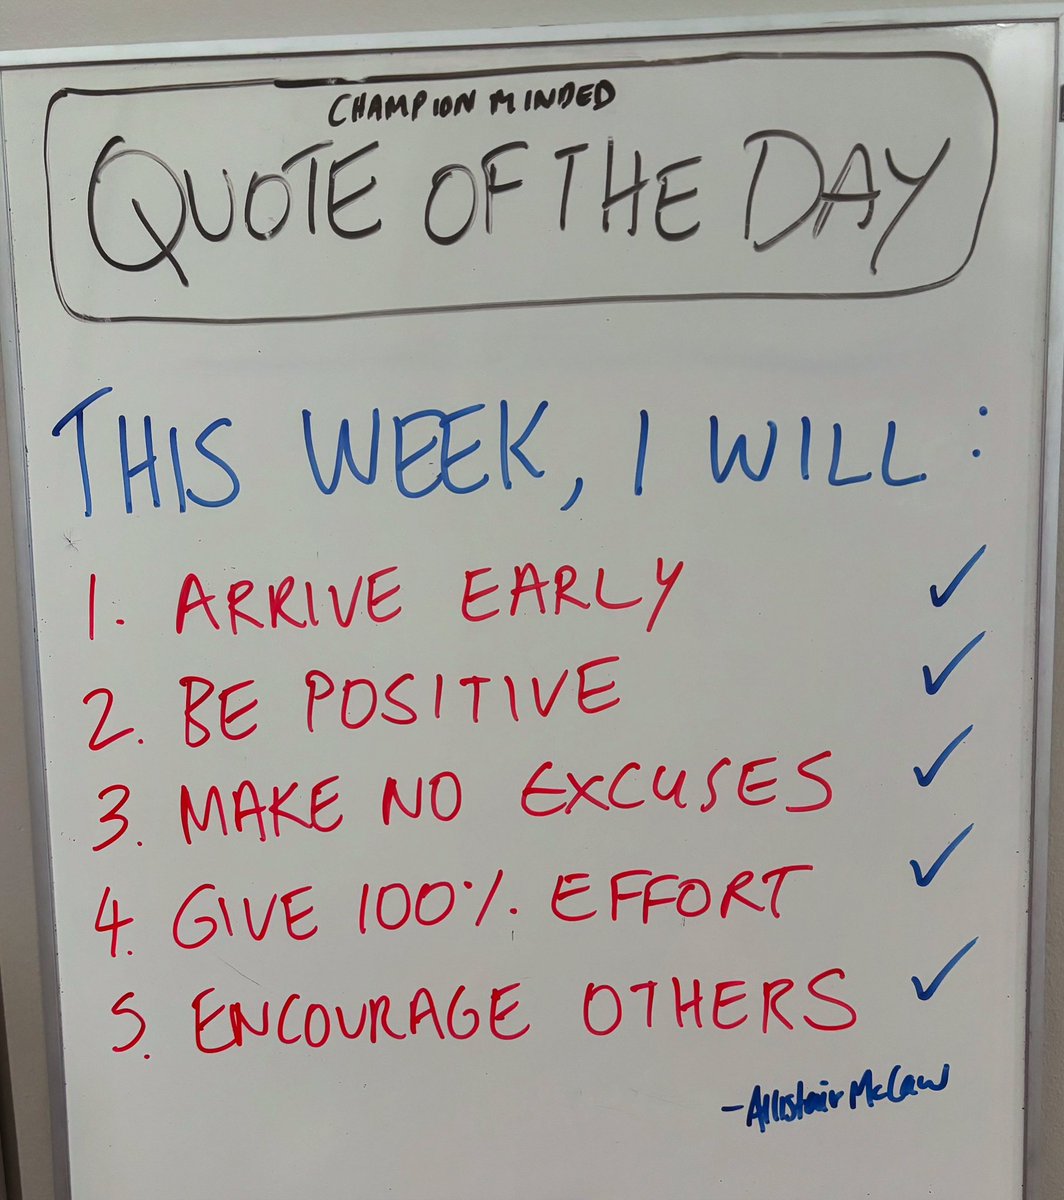 CHAMPION MINDED
QUOTE OF THE DAY
THIS WEEK, I WILL:
1. ARRIVE EARLY ✓
2. BE POSITIVE ✓
3. MAKE NO EXCUSES ✓
4. GIVE 100% EFFORT ✓
5. ENCOURAGE OTHERS ✓
- Allistair McCaw